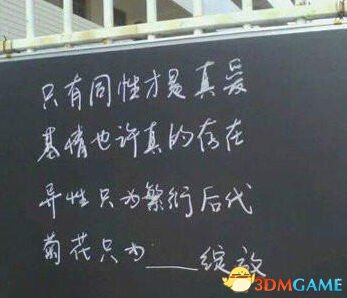 只有同性才是真爱
基情也许真的存在
异性只为繁衍后代
菊花只为___绽放
3DMGAME